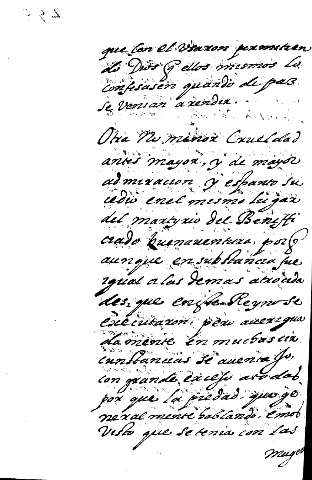 que con el usaron permitien
do Dios q ellos mismos lo
confesasen quando de paz
se venian a rendir.
Otra no menor Crueldad
antes mayor, y de mayor
admiracion y espanto su
cedio en el mismo lugar
del martyrio del Beneffi
ciado buenaventura, porq
aunque en substancia fue
igual a las demas atrocida
des, que en Reyno se
executaron, pero averigua
damente en muchas cir
cunstancias se aventajo,
con grande exceso a todas
por que la piedad, que ge
neralmente hablando, emos
visto que se tenia con las
muge